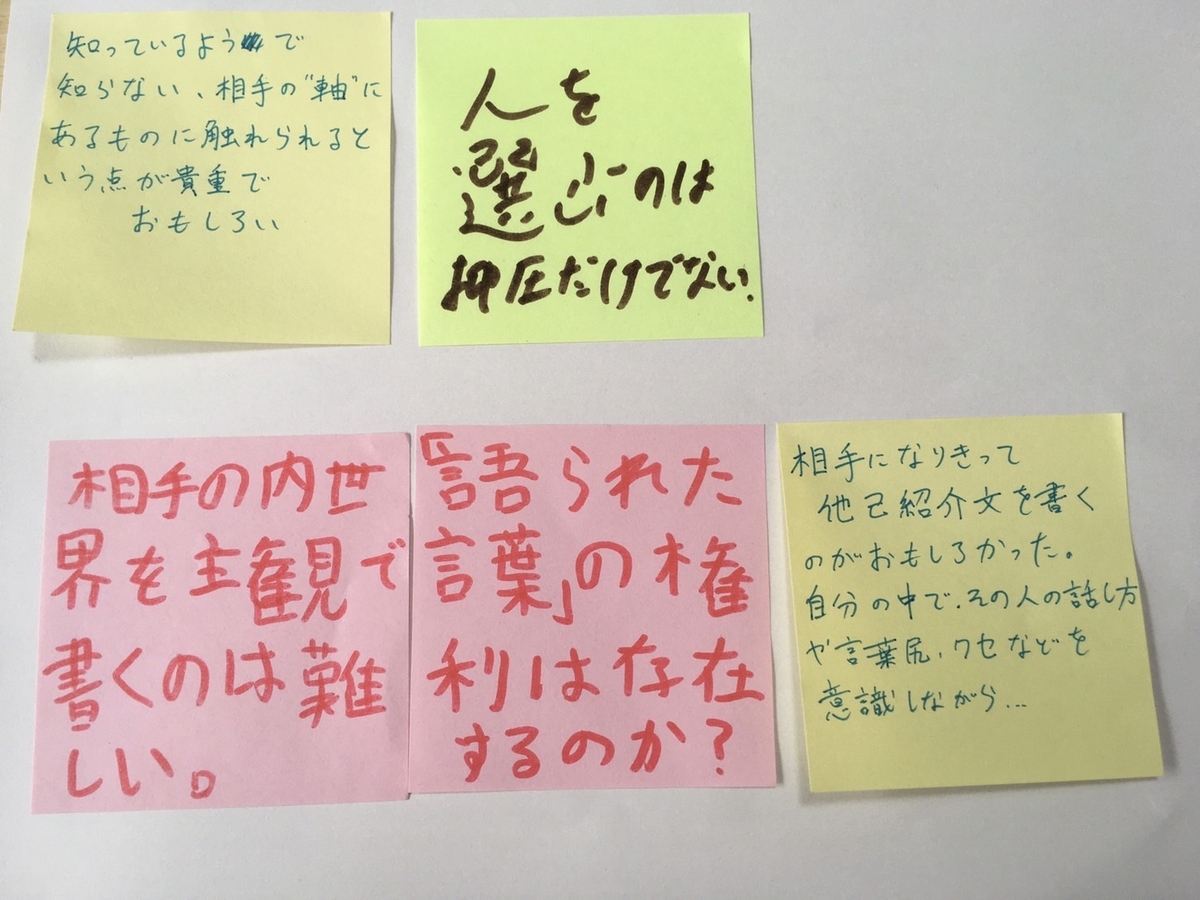 知っているようで
知らない、相手の"軸"に
あるものに触れられると
いう点が貴重で
おもしろい
人を
選ぶのは
抑圧だけでない.
相手の内世
界を主観で
書くのは難
しい。
「語られた
言葉」の権
利は存在
するのか?
相手になりきって
他己紹介文を書く
のがおもしろかった。
自分の中で、その人の話し方
や言葉尻、クセなどを
意識しながら...